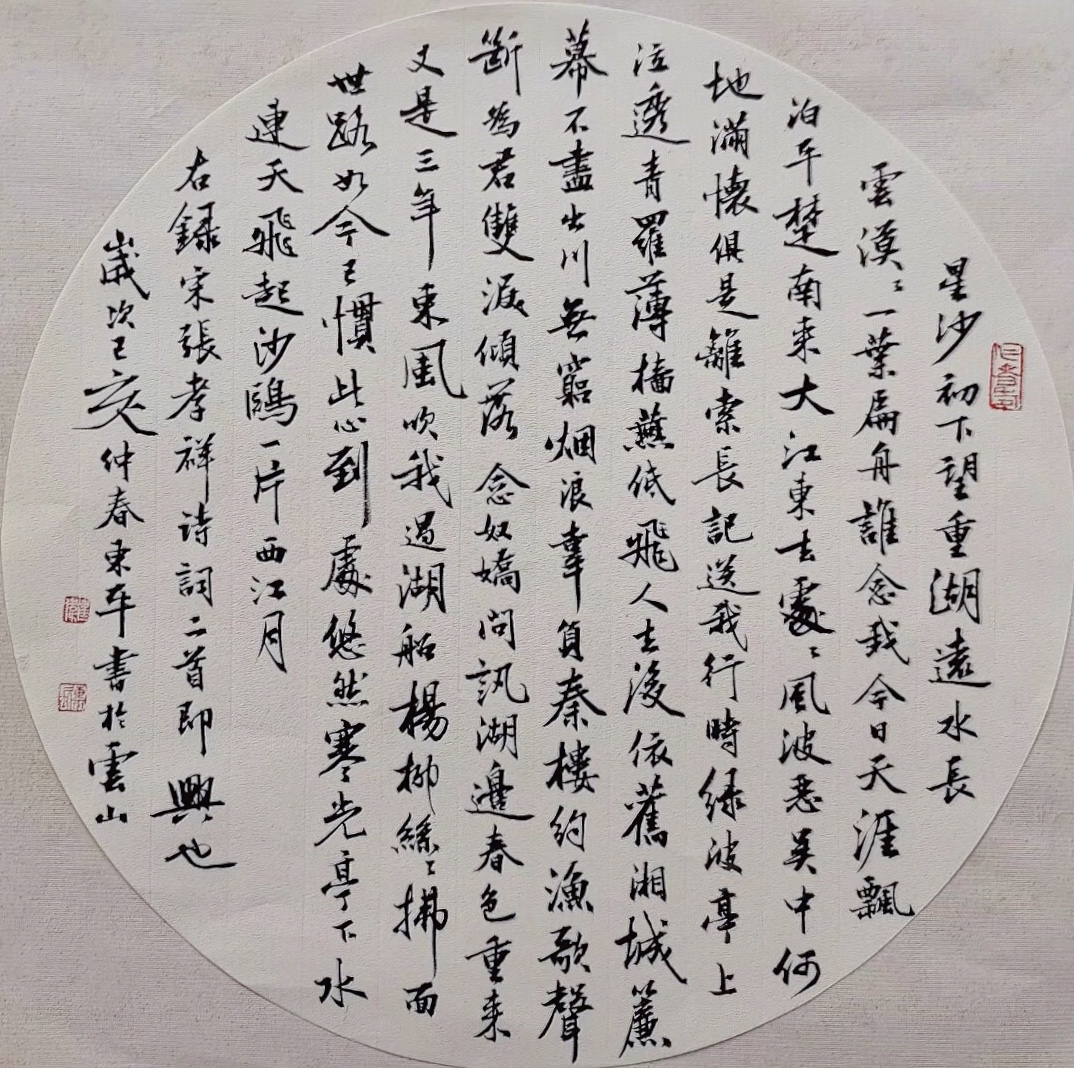 星沙初下望重湖遠水長
雲漠〻一葉扁舟誰念我今日天涯飄
泊平楚南來大江東去處〻風波惡吴中何
地滿懷俱是離索長記送我行時緑波亭上
泣透青羅薄檣燕低飛人去後依舊湘城簾
幕不盡山川無窮烟浪辜負秦樓約漁歌聲
斷爲君雙淚傾落 念奴嬌問訊湖邊春色重来
又是三年東風吹我過湖船楊柳絲〻拂面
世路如今已慣此心到處悠然寒光亭下水
連天飛起沙鷗一片西江月
右録宋張孝祥诗詞二首即興也
歲次己亥仲春東平書於雲山